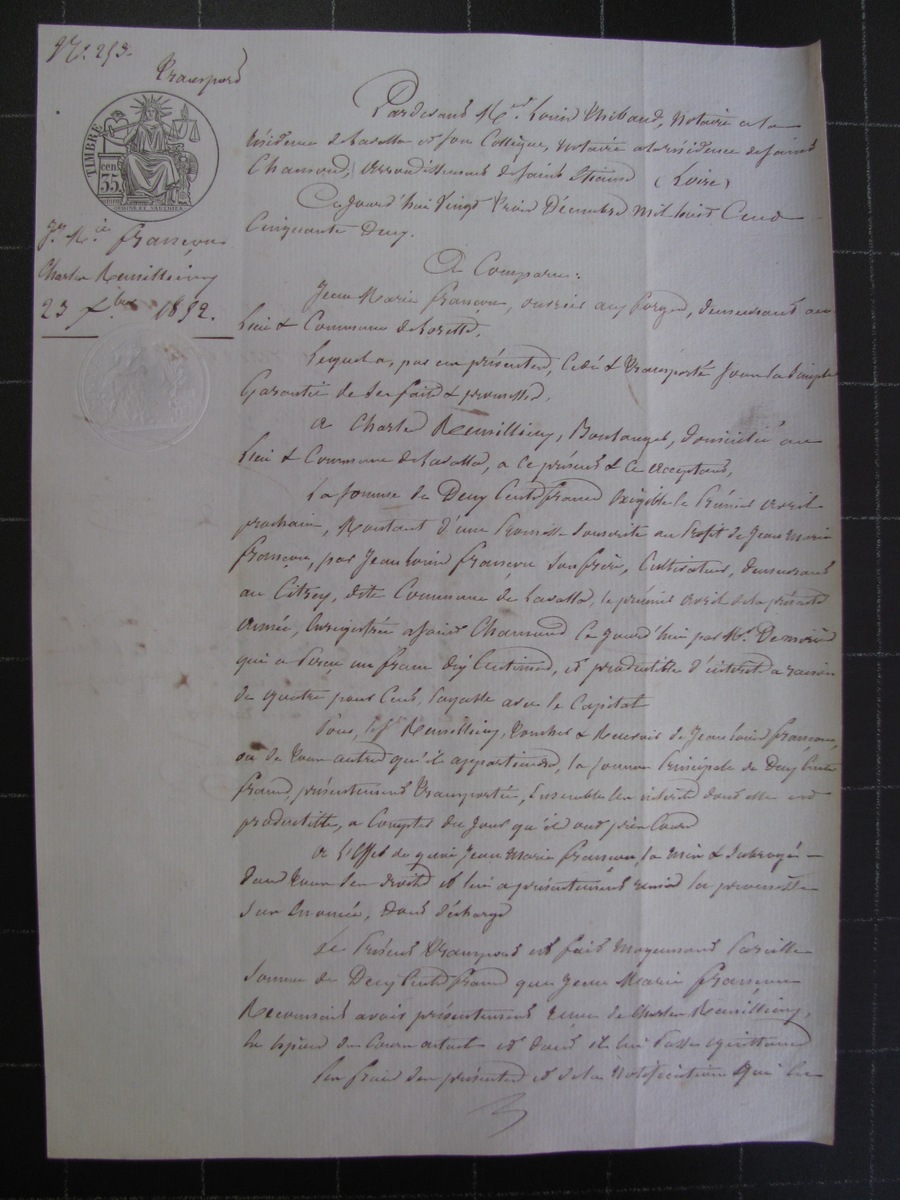 N.º 253.
Transport
TIMBRE
cen
35
Jn. Mie. françon
Charles Remillieux
23 Xbre 1852.
Pardevant Me. Louis Thibaud, Notaire à la
résidence de Lavalla et son Collègue, notaire à la résidence de Saint
Chamond, arrondissement de Saint Etienne (Loire)
Ce jourd'hui vingt trois Décembre mil huit Cent
Cinquante Deux.
A Comparu:
Jean Marie françon, ouvrier aux forges, demeurant au
Lieu & Commune de Lorette.
Lequel a, par ces présentes, Cédé & transporté sous la simple
Garantie de ses faits & promesses,
A Charles Remillieux, Boulanger, domicilié au
Lieu & Commune de Lavalla, à ce présent & ce acceptant,
La somme de Deux Cents francs exigible le Prémier avril
prochain, Montant d'une Promesse souscrite au Profit de Jean Marie
françon, par Jean Louis françon son frère, Cultivateur, demeurant
au Citrey, dite Commune de Lavalla, le prémier avril de la présente
année, Enregistrée à Saint Chamond Ce jourd'hui par Mr.
qui a perçu un franc dix Centimes, et productible d'intérêt à raison
de quatre pour Cent, payable avec le Capital
Pour, led. Sr. Remillieux, toucher & Recevoir de Jean Louis françon,
ou de tous autres qu'il appartiendra, la somme Principale de Deux Cents
francs, présentement transportée, Ensemble les intérêts dont elle est
productible, à Compter du jour qu'ils ont pris Cours
A l'Effet de quoi Jean Marie françon, l'a Mis & subrogé
dans tous ses droits et lui a présentement remis la promesse
sus énoncée, dont décharge
Le Présent transport est fait moyennant Pareille
somme de Deux Cents francs que Jean Marie françon
Reconnait avoir présentement reçue de Charles Remillieux,
en espèces de Cours actuel et dont il lui Passe quittance
Les frais des présentes et de la Notification qui en